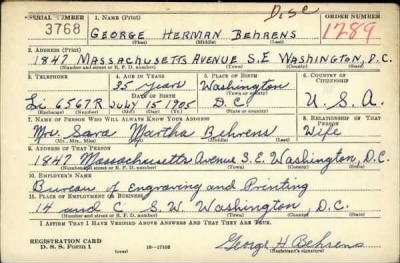 Disc
SERIAL NUMBER 1. NAME (Print) ORDER NUMBER
3768 GEORGE HERMAN BEHRENS 1289
(First) (Middle) (Last)
2. ADDRESS (Print)
1847 MASSACHUSETTS AVENUE S.E WASHINGTON, D.C.
(Number and street or R. F. D. number) (Town) (County) (State)
3. TELEPHONE 4. AGE IN YEARS 5. PLACE OF BIRTH 6. COUNTRY OF CITIZENSHIP
35 years Washington
DATE OF BIRTH (Town or county)
Li 6567R July 15 1905 D.C. U.S.A.
(Exchange) (Number) (Mo.) (Day) (Yr.) (State or country)
7. NAME OF PERSON WHO WILL ALWAYS KNOW YOUR ADDRESS 8. RELATIONSHIP OF THAT PERSON
Mrs. Sara Martha Behrens Wife
(Mr., Mrs., Miss) (First) (Middle) (Last)
9. ADDRESS OF THAT PERSON
1847 Massachusetts Avenue S.E. Washington, D.C.
(Number and street or R. F. D. number) (Town) (County) (State)
10. EMPLOYER'S NAME
Bureau of Engraving and Printing
11. PLACE OF EMPLOYMENT OR BUSINESS
14 and C S.W. Washington, D.C.
(Number and street or R. F. D. number) (Town) (County) (State)
I AFFIRM THAT I HAVE VERIFIED ABOVE ANSWERS AND THAT THEY ARE TRUE.
REGISTRATION CARD
D. S. S. Form 1 (over) 16—17105 George H Behrens
(Registrant's signature)